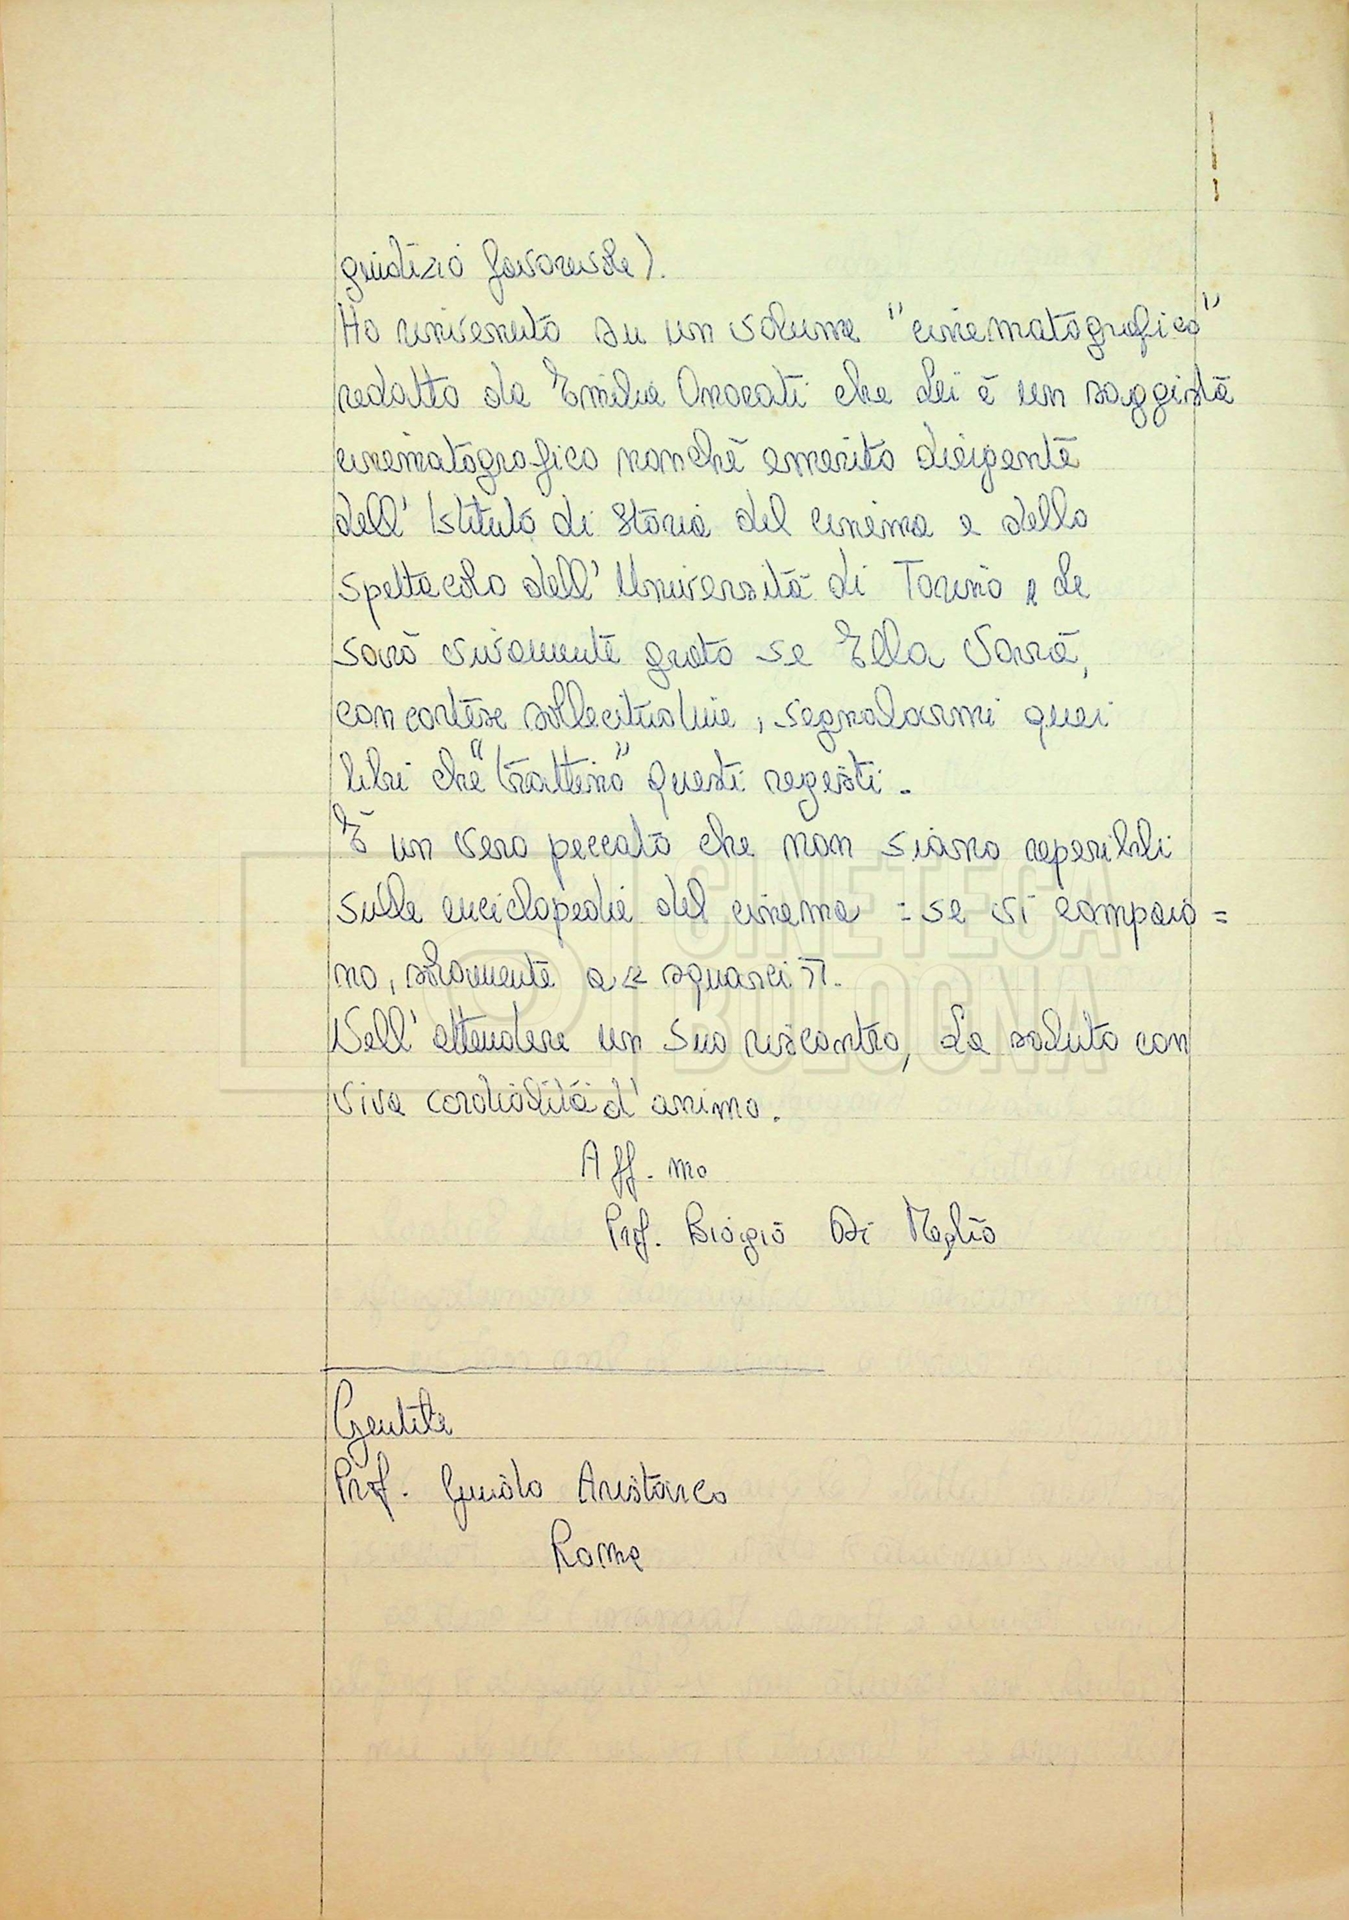 giudizio favorevole).
Ho rinvenuto su un volume "cinematografico"
redatto da Emilia Onorati che Lei è un saggista
cinematografico nonchè emerito dirigente
dell' Istituto di Storia del cinema e dello
spettacolo dell' Università di Torino e Le
sarò vivamente grato se Ella vorrà,
con cortese sollecitudine, segnalarmi quei
libri che "trattino" questi registi.
È un vero peccato che non siano reperibili
sulle enciclopedie del cinema = se vi compaio =
no, solamente a << squarci >>.
Nell' attendere un Suo riscontro, La saluto con
viva cordialità d' animo.
Aff. mo
Prof. Biagio Di Meglio
Gentile
Prof. Guido Aristarco
Roma
CINETECA
BOLOGNA